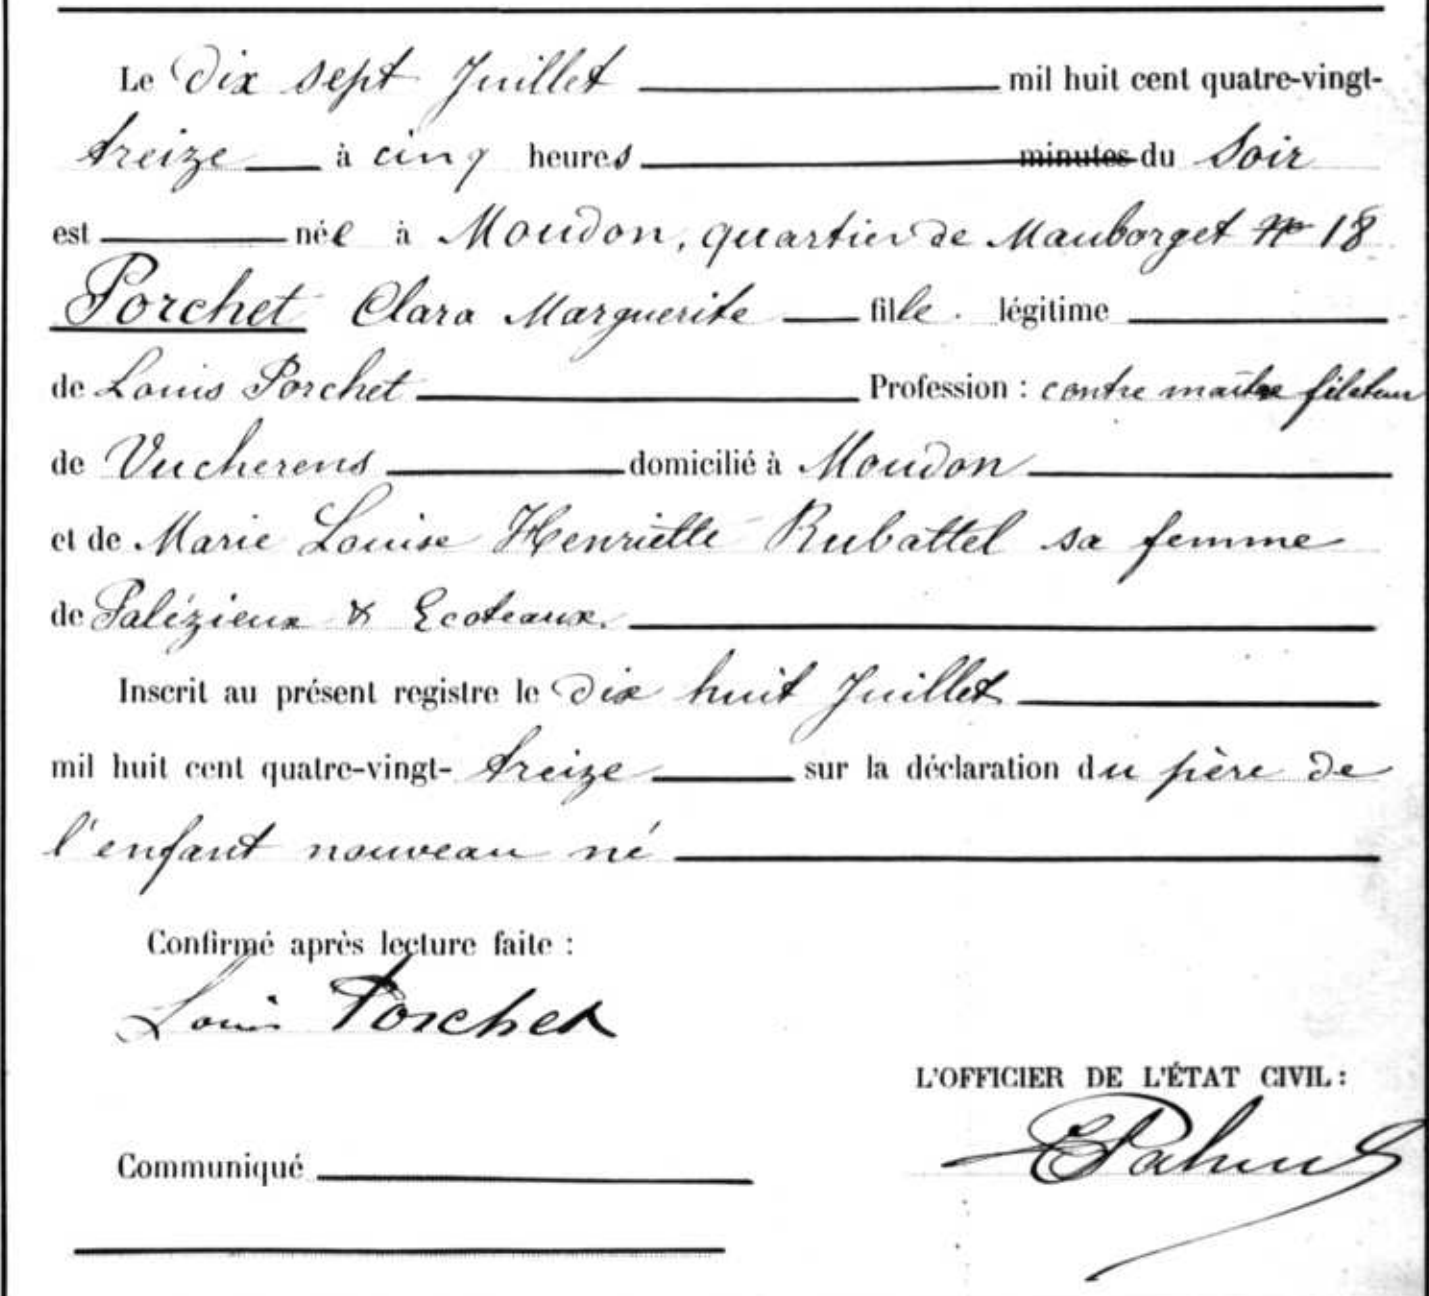 Le dix sept Juillet mil huit cent quatre-vingt-
treize à cinq heures minutes du Soir
est née à Moudon, quartier de Mauborget No 18
Porchet Clara Marguerite fille légitime
de Louis Porchet Profession : contre maître filateur
de Vucherens domicilié à Moudon
et de Marie Louise Henriette Rubattel sa femme
de Palézieux & Ecoteaux.
Inscrit au présent registre le dix huit Juillet
mil huit cent quatre-vingt- treize sur la déclaration du père de
l'enfant nouveau né
Confirmé après lecture faite :
Louis Porchet
L'OFFICIER DE L'ÉTAT CIVIL :
Communiqué